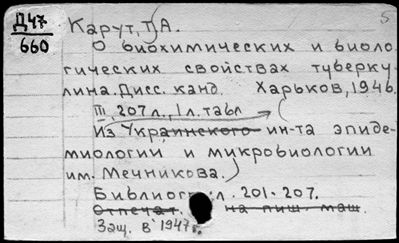 Д47
660
5
Карут, Т.А.
О биохимических и биоло-
гических свойствах туберку-
лина. Дисс. канд. Харьков, 1946.
III, 207 л., 1 л. табл
(Из Украинского ин-та эпиде-
миологии и микробиологии
им. Мечникова.)
Библиогр.: л. 201-207.
Отпечат. на пиш. маш.
Защ. в 1947 г.